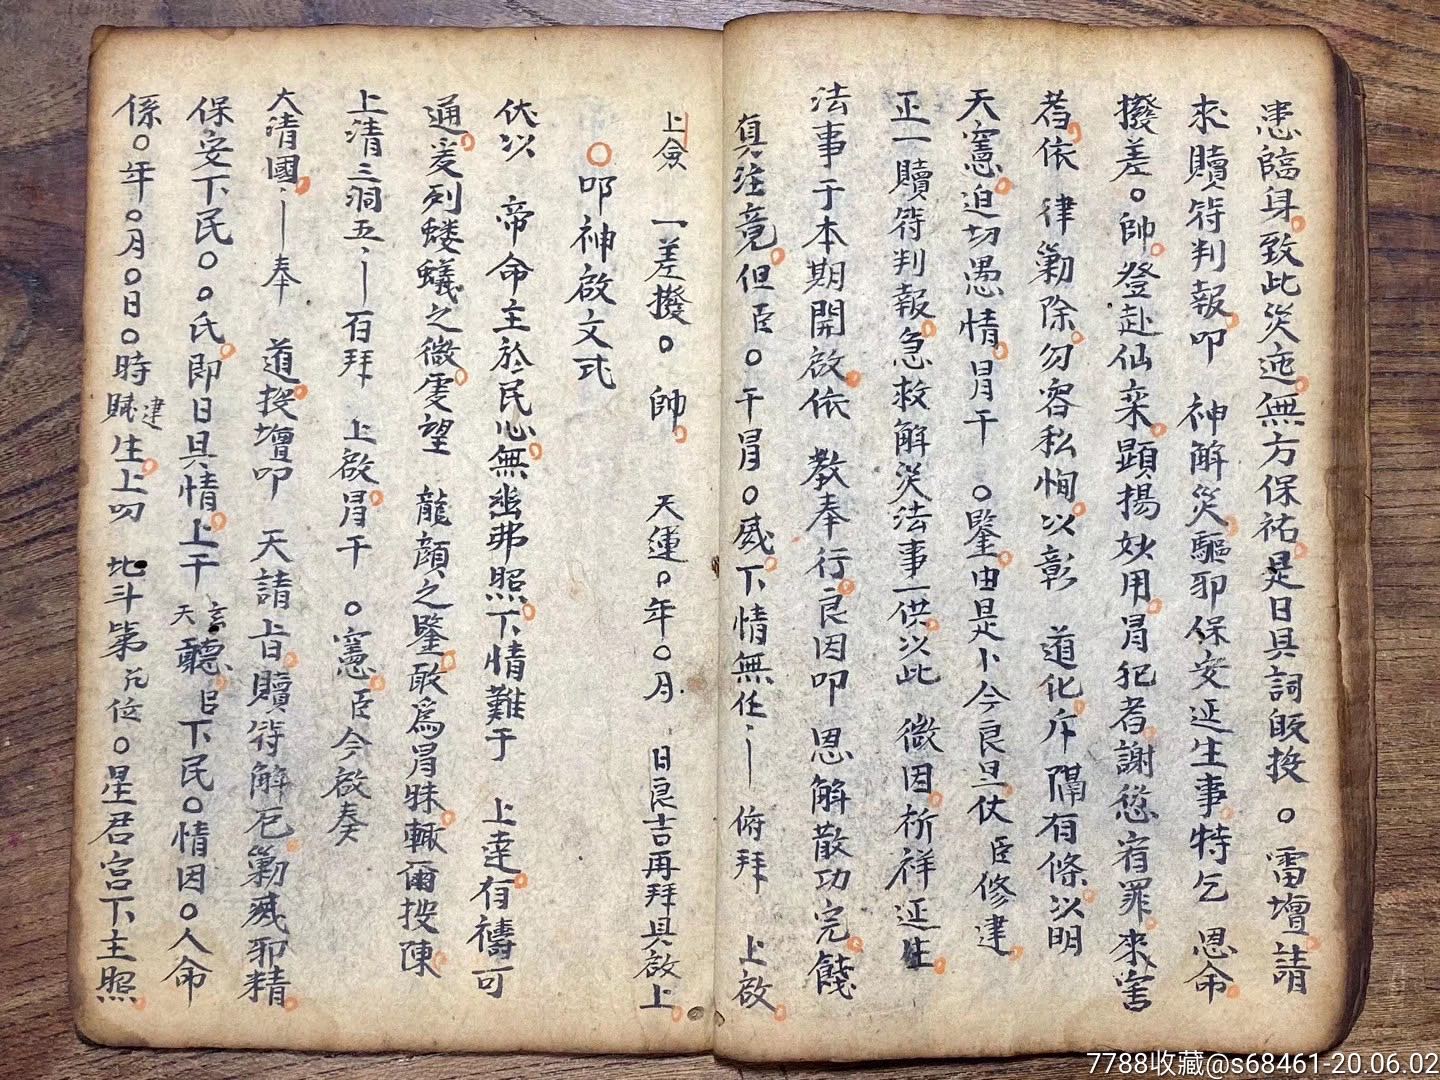 患臨身致此災迍無方保祐是日具詞皈投〇雷壇請
求贖符判報叩 神解災驅邪保安延生事特乞 恩命
撥差〇帥登赴仙來顯揚妙用冐犯者謝愆宥罪來害
者依 律勦除勿容私恂以彰 道化斥隔有條以明
天憲迫切愚情冐干 〇鑒由是卜今良旦伏臣修建
正一贖符判報急救解災法事一供以此 微因祈祥延生
法事于本期開啟依 教奉行良因叩 恩解散功完餞
真注竟但臣〇干冐〇威下情無任 俯拜 上啟
上僉 一差撥〇帥 天運〇年〇月 日良吉再拜具啟上
〇叩神啟文式
伏以 帝命主於民心無幽弗照下情難于 上達有禱可
通爰列螻蟻之微虔望 龍顔之鑒敢爲冐昧輙爾投陳
上清三洞五 百拜 上啟冐干 〇憲臣今啟奏
大清國 奉 道投壇叩 天請上日贖符解厄勦滅邪精
保安下民〇〇氏即日具情上干 玄天聽臣下民〇情因〇人命
係〇年〇月〇日〇時建生上叨 北斗第 位〇星君宮下主照
7788收藏@s68461-20.06.02